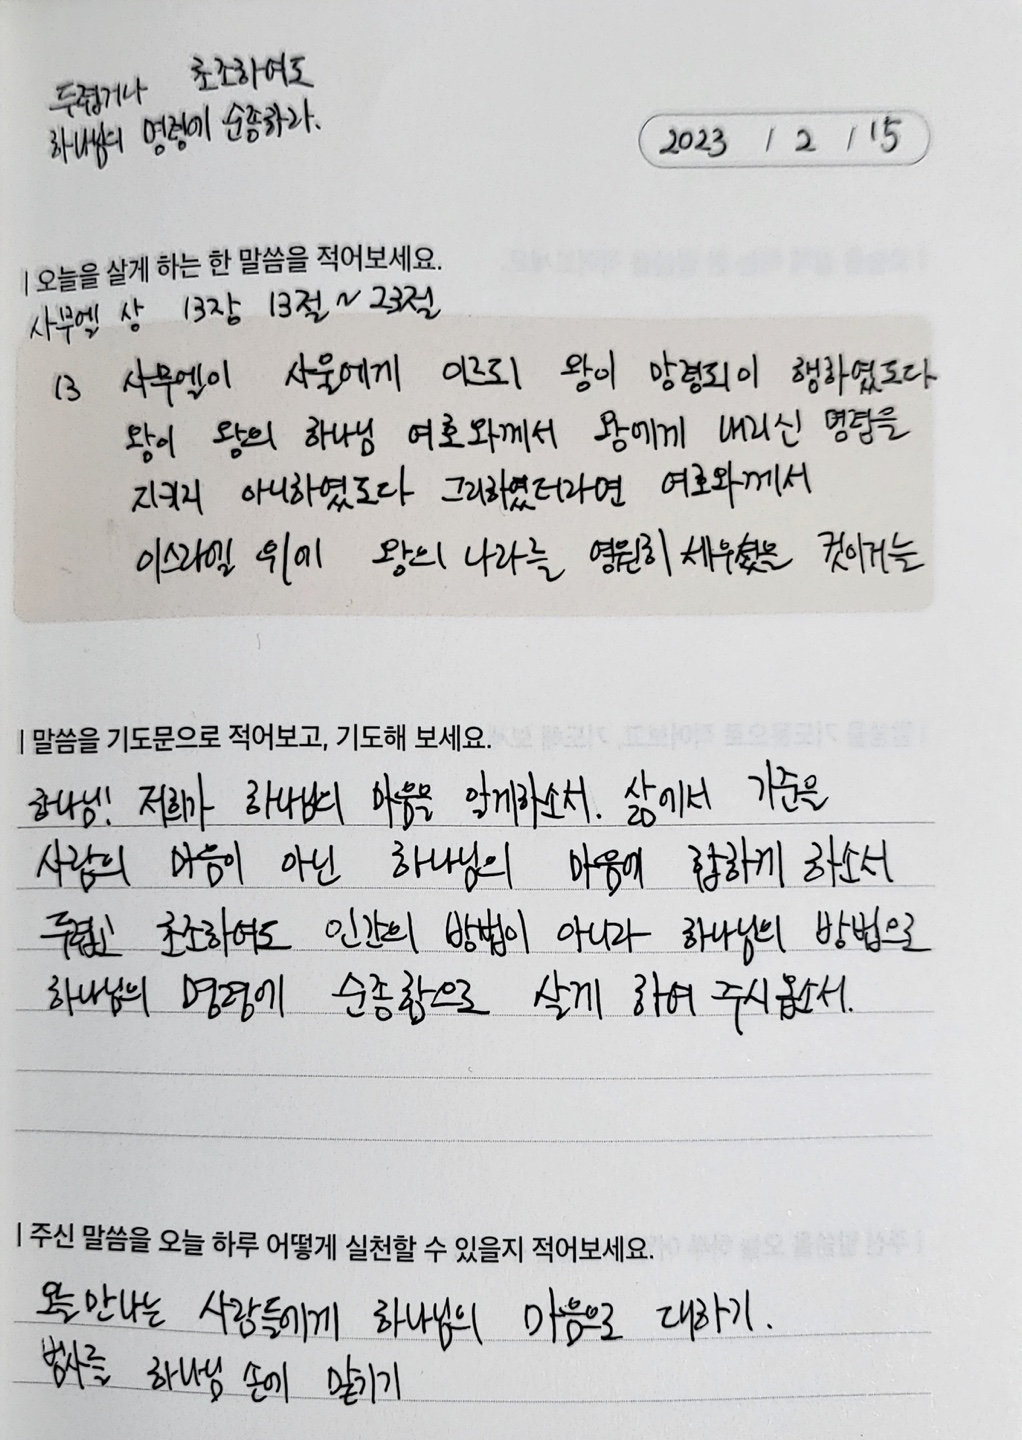 두렵거나 초조하여도
하나님의 명령에 순종하라.
2023 / 2 / 15
오늘을 살게 하는 한 말씀을 적어보세요.
사무엘 상 13장 13절 ~ 23절
13 사무엘이 사울에게 이르되 왕이 망령되이 행하였도다
왕이 왕의 하나님 여호와께서 왕에게 내리신 명령을
지키지 아니하였도다 그리하였더라면 여호와께서
이스라엘 위에 왕의 나라를 영원히 세우셨을 것이거늘
말씀을 기도문으로 적어보고, 기도해 보세요.
하나님! 저희가 하나님의 마음을 알게하소서. 삶에서 기준을
사람의 마음이 아닌 하나님의 마음에 합하게 하소서
두렵고 초조하여도 인간의 방법이 아니라 하나님의 방법으로
하나님의 명령에 순종함으로 살게 하여 주시옵소서.
주신 말씀을 오늘 하루 어떻게 실천할 수 있을지 적어보세요.
오늘 만나는 사람들에게 하나님의 마음으로 대하기.
범사를 하나님 손에 맡기기